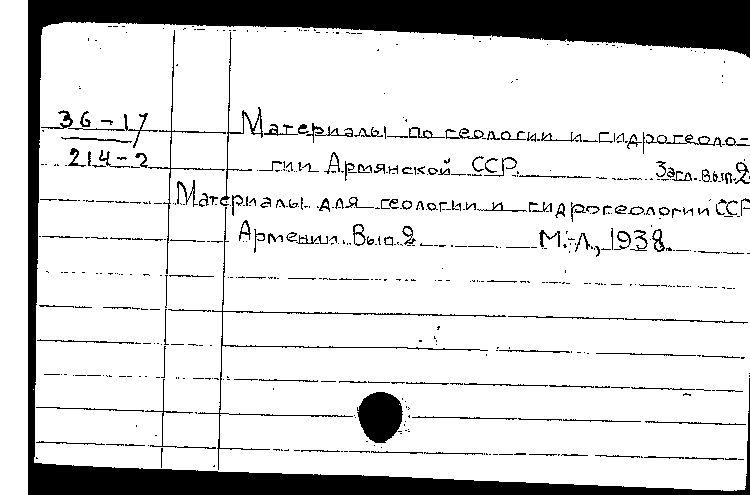 36-17/
214-2
Материалы по геологии и гидрогеоло=
гии Армянской ССР. Загл. вып. 2.
Материалы для геологии и гидрогеологии ССР
Армении. Вып. 2. М.-Л., 1938.